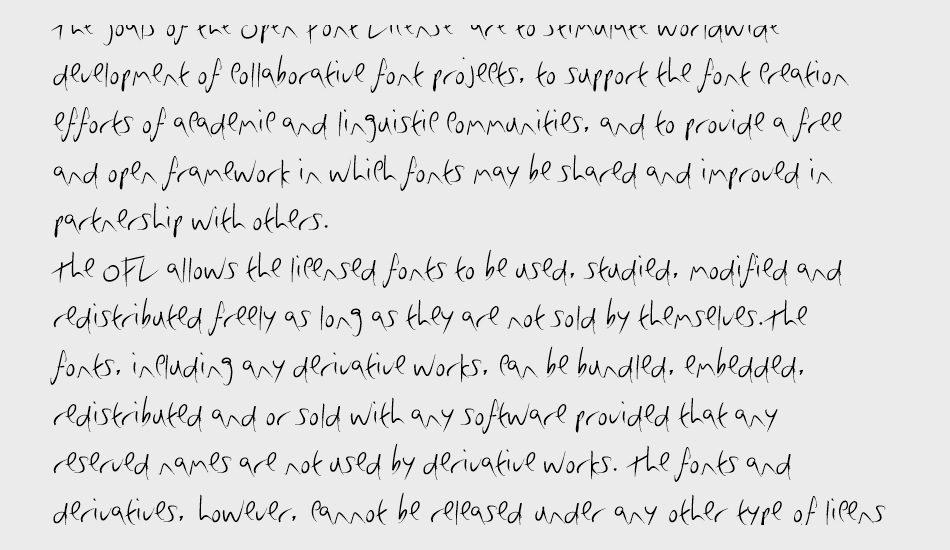 The goals of the Open Font License are to stimulate worldwide
development of collaborative font projects, to support the font creation
efforts of academic and linguistic communities, and to provide a free
and open framework in which fonts may be shared and improved in
partnership with others.
The OFL allows the licensed fonts to be used, studied, modified and
redistributed freely as long as they are not sold by themselves.The
fonts, including any derivative works, can be bundled, embedded,
redistributed and or sold with any software provided that any
reserved names are not used by derivative works. The fonts and
derivatives, however, cannot be released under any other type of licens